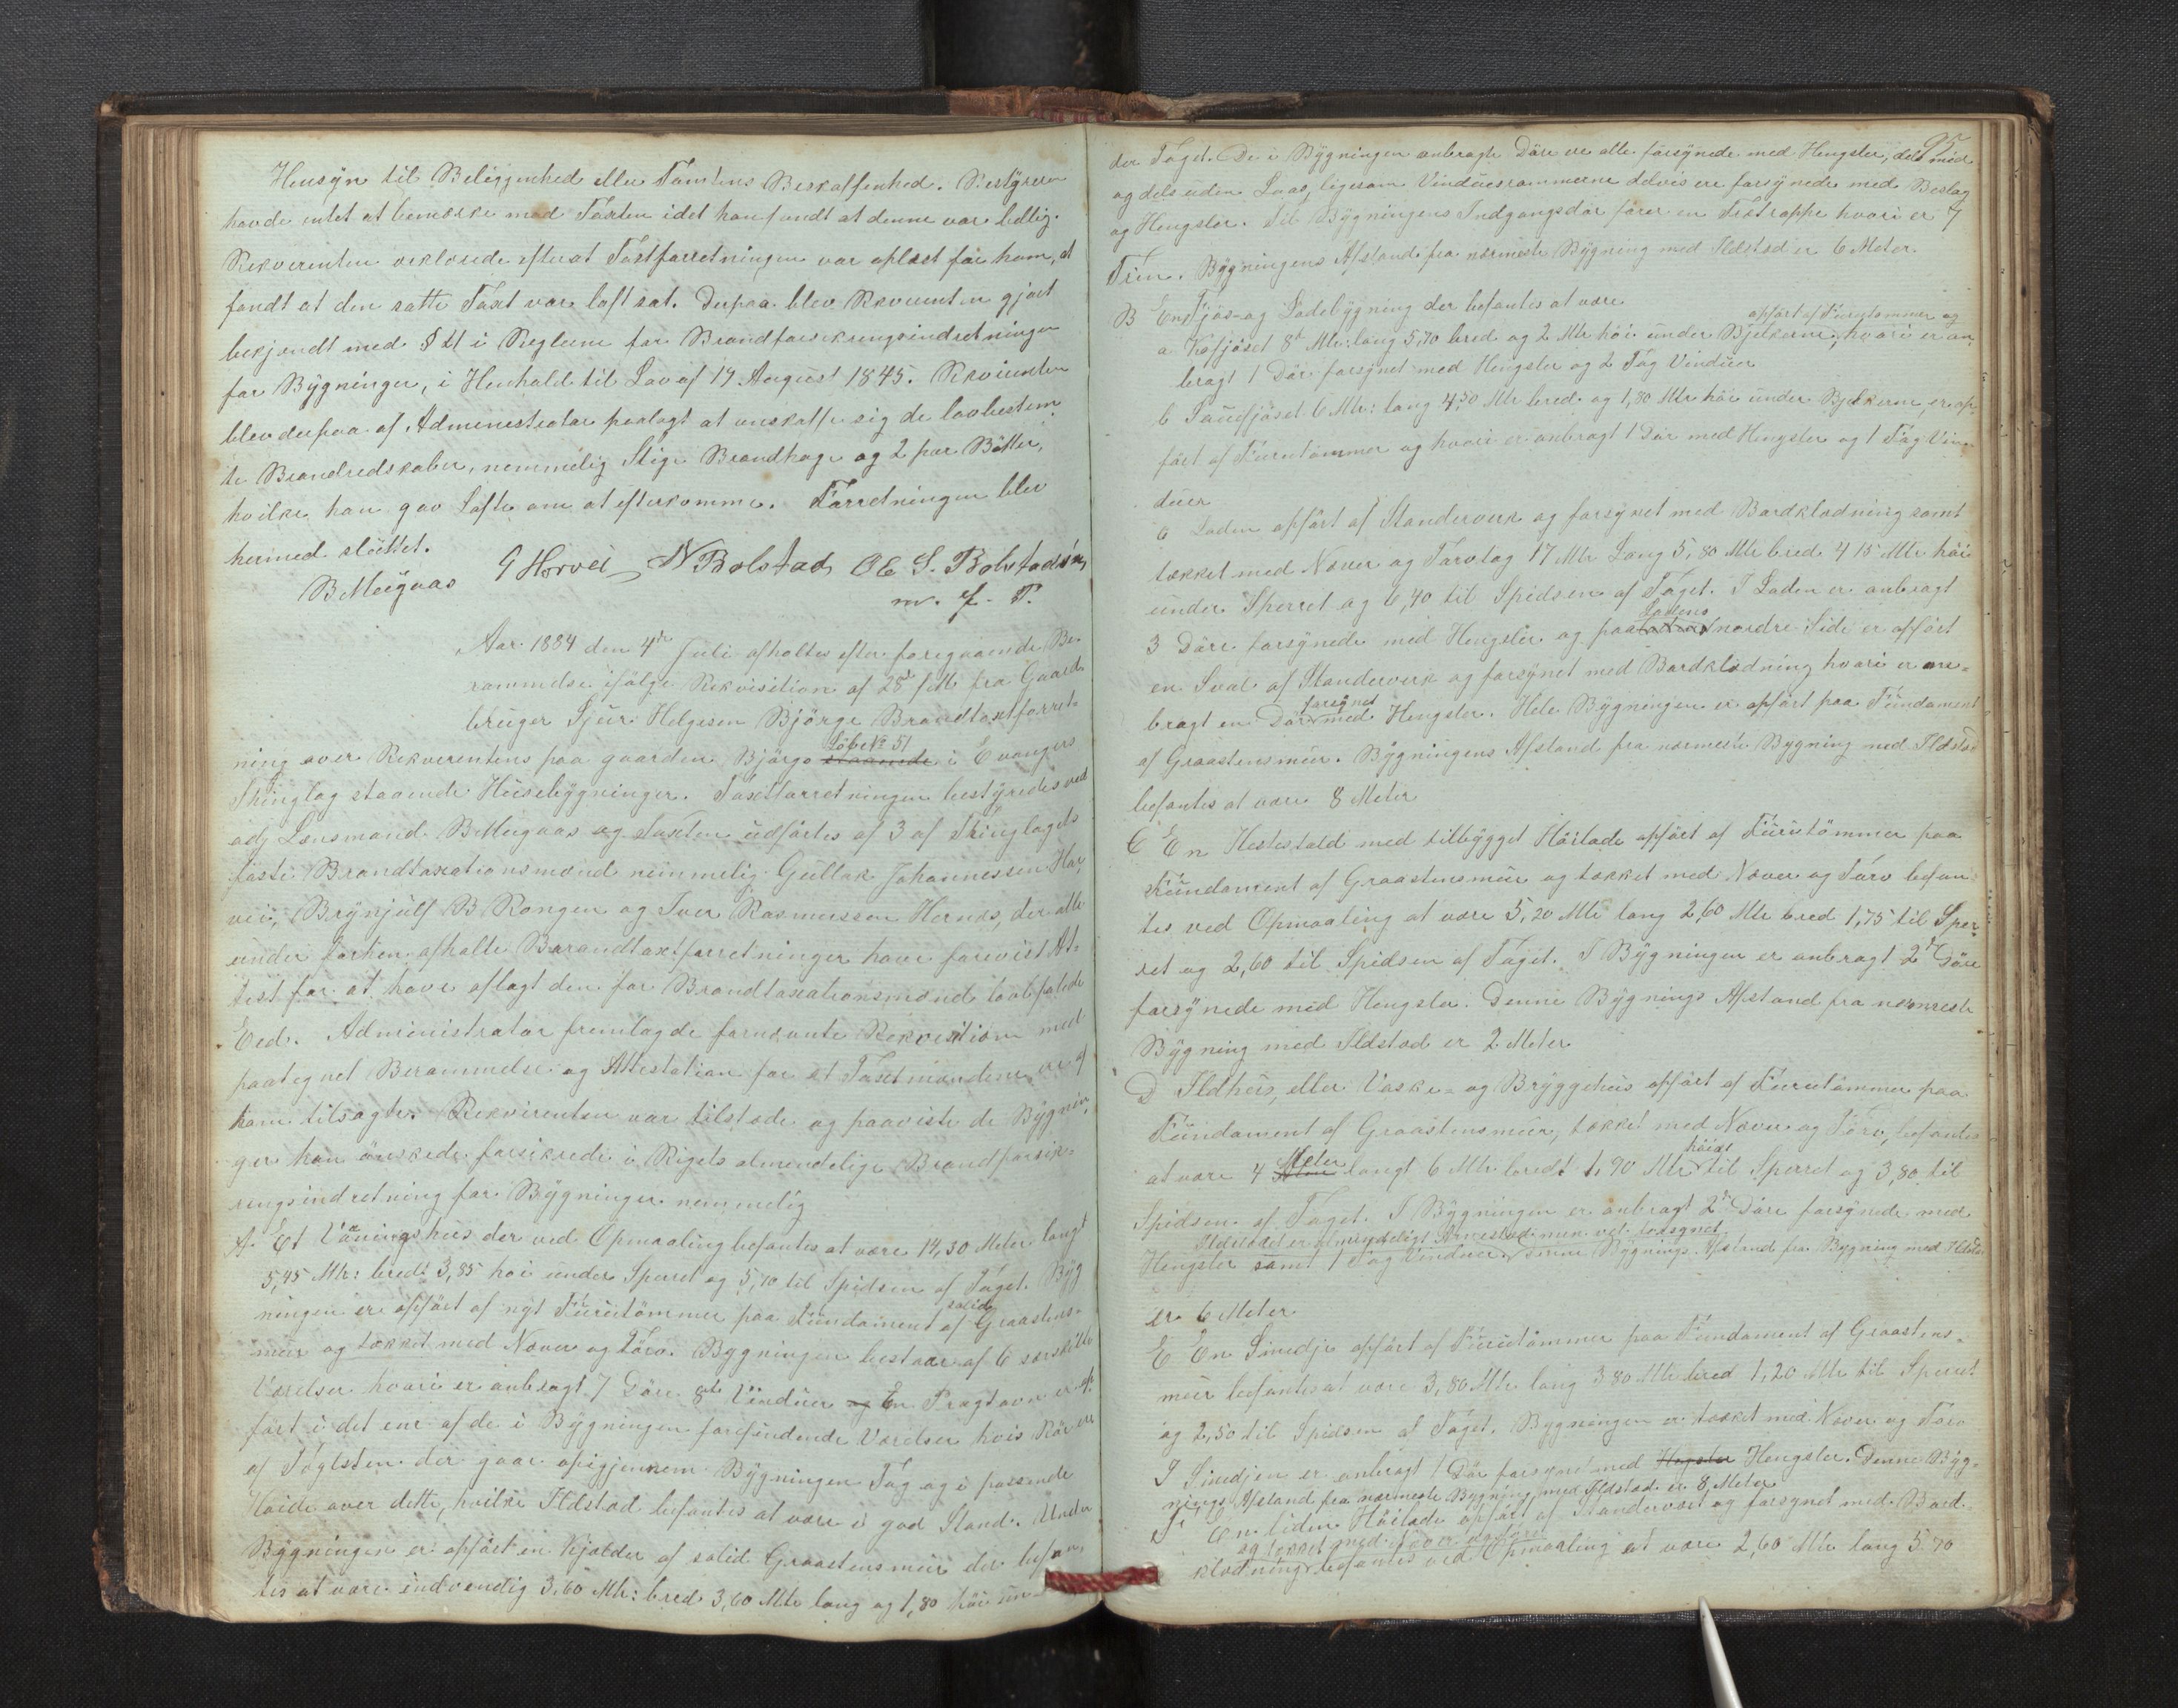 Hensÿn til Beliggenhed eller Tomtens Beskaffenhed. Bestÿreren
havde intet at bemærke mod Taxten idet han fandt at denne var billig.
Rekvirenten erklærede efterat Taxtforretningen var oplæst for ham, at
fandt at den satte Taxt var løst sat. Derpaa blev Rekvirenten gjort
bekjendt med § 21 i Reglerne for Brandforsikringsindretningen
for Bÿgninger, i Henhold til Lov af 19 August 1845. Rekvirenten
blev derpaa af Administrator paalagt at anskaffe sig de lovbestem
te Brandredskaber, nemmelig Stige Brandhage og 2 par Bøtter,
hvilke han gav Løfte om at efterkomme. Forretningen blev
hermed sluttet.
B Meÿaas G Horvei N Bolstad O E S. Bolstadøen
m. f. P.
Aar 1884 den 4de Juli afholtes efter foregaaende Be-
rammelse ifølge Rekvisition af 28de f M fra Gaard
bruger Sjur Helgesen Bjørge Brandtaxtforret-
ning over Rekvirentens paa gaarden Bjørge Løb No 51 staaende i Evanger
Thinglag staaende Husebÿgninger. Taxtforretningen bestÿredes ved
adj Lensmand B Meÿaas og Taxten udførtes af 3 af Thinglagets
faste Brandtaxationsmænd nemmelig Gullak Johannessen Hor
vei, Brÿnjulf B Rongen og Iver Rasmussen Hernes, der alle
under forhen afholte Barandtaxtforretninger have forevist At-
test for at have aflagt den for Brandtaxationsmænd lovbefalede
Eed. Administrator fremlagde fornævnte Rekvisition med
paategnet Berammelse og Attestation for at Taxtmændene ere af
ham tilsagte. Rekvirenten var tilstede og paaviste de Bÿgnin
ger han ønskede forsikrede i Rigets almindelige Brandforsik-
ringsindretning for Bÿgninger nemmelig
A. Et Vaaningshus der ved Opmaaling befantes at være 14,30 Meter langt
5,45 Mtr: bredt 3,85 høi under Sperret og 5,70 til Spidsen af Taget. Bÿg
ningen er opført af nÿt Furutømmer paa Fundament af solid Graastens-
mur og tækket med Næver og Tørv. Bÿgningen bestaar af 6 særskilte
Værelser hvori er anbragt 7 Døre 8te Vinduer og En Pragtovn er op
ført i det ene af de i Bÿgningen forefindende Værelser hvis Rør er
af Taglsten der gaar opigjennem Bÿgningen Tag og i passende
Høide over dette, hvilke Ildsted befantes at være i god Stand. Under
Bÿgningen er opført en Kjælder af solid Graastensmur der befan,
tes at være indvendig 3,60 Mtr: bred 3,60 Mtr lang og 1,80 høi un-
der Taget. De i Bÿgningen anbragte Døre ere alle forsÿnede med Hengsler, dels med
og dels uden Laas, ligesom Vinduesrammerne delvis ere forsÿnede med Beslag
og Hengsler. Til Bÿgningens Indgangsdør fører en Trætrappe hvori er 7
Trin. Bÿgningens Afstand fra nærmeste Bÿgning med Ildsted er 6 Meter.
B En Fjøs- og Ladebÿgning der befantes at være
a Kofjøset 8te Mtr: lang 5,70 bred og 2 Mtr høi under Bjelkerne, opført af Furutømmer og hvori er an,
bragt 1 Dør forsÿnet med Hengsler og 2 Fag Vinduer
b Sauefjøset 6 Mtr: lang 4,30 Mtr bred og 1,80 Mtr høi under Bjelkerne, er op
ført af Furutømmer og hvori er anbragt 1 Dør med Hengsler og 1 Fag Vin-
duer
c Laden opført af Standerverk og forsÿnet med Bordklædning samt
tækket med Næver og Tørvtag 17 Mtr Lang 5,80 Mtr bred 4 15 Mtr høi
under Sperret og 6,40 til Spidsen af Taget. I Laden er anbragt
3 Døre forsÿnede med Hengsler og paa Ladens nordre Side er opført
en Sval af Standerverk og forsÿnet med Bordklædning hvori er an-
bragt en Dør forsÿnet med Hengsler. Hele Bÿgningen er opført paa Fundament
af Graastensmur. Bÿgningens Afstand fra nærmeste Bÿgning med Ildsted
befantes at være 8 Meter
C En Hestestald med tilbÿgget Høilade opført af Furutømmer paa
Fundament af Graastensmur og tækket med Næver og Tørv befan
tes ved Opmaaling at være 5,20 Mtr lang 2,60 Mtr bred 1,75 til Sper-
ret og 2,60 til Spidsen af Taget. I Bÿgningen er anbragt 2de Døre
forsÿnede med Hengsler. Denne Bÿgnings Afstand fra nærmeste
Bÿgning med Ildsted er 2 Meter
D Ildhus, eller Vaske- og Brÿggehus opført af Furutømmer paa
Fundament af Graastensmur, tækket med Næver og Tørv, befantes
at være 4 Meter langt 6 Mtr bredt 1,90 Mtr høiet til Sperret og 3,80 til
Spidsen af Taget. I Bÿgningen er anbragt 2de Døre forsÿnede med
Hengsler samt 1 Fag Vinduer. Ildstedet er almindeligt Arnested men vel forsÿnet Denne Bÿgnings Afstand fra Bÿgning med Ildsted
er 6 Meter.
E En Smedje opført af Furutømmer paa Fundament af Graastens-
mur befantes at være 3,80 Mtr lang 3 80 Mtr bred 1,20 Mtr til Sperret
og 2,50 til Spidsen af Taget. Bÿgningen er tækket med Næver og Tørv
I Smedjen er anbragt 1 Dør forsÿnet med Hegsler Hengsler. Denne Bÿg-
nings Afstand fra nærmeste Bÿgning med Ildsted er 8 Meter
F. En liden Høilade opført af Standerværk og forsÿnet med Bord-
klædning og tækket med Næver og Tørv befantes ved Opmaaling at være 2,60 Mtr lang 5.70